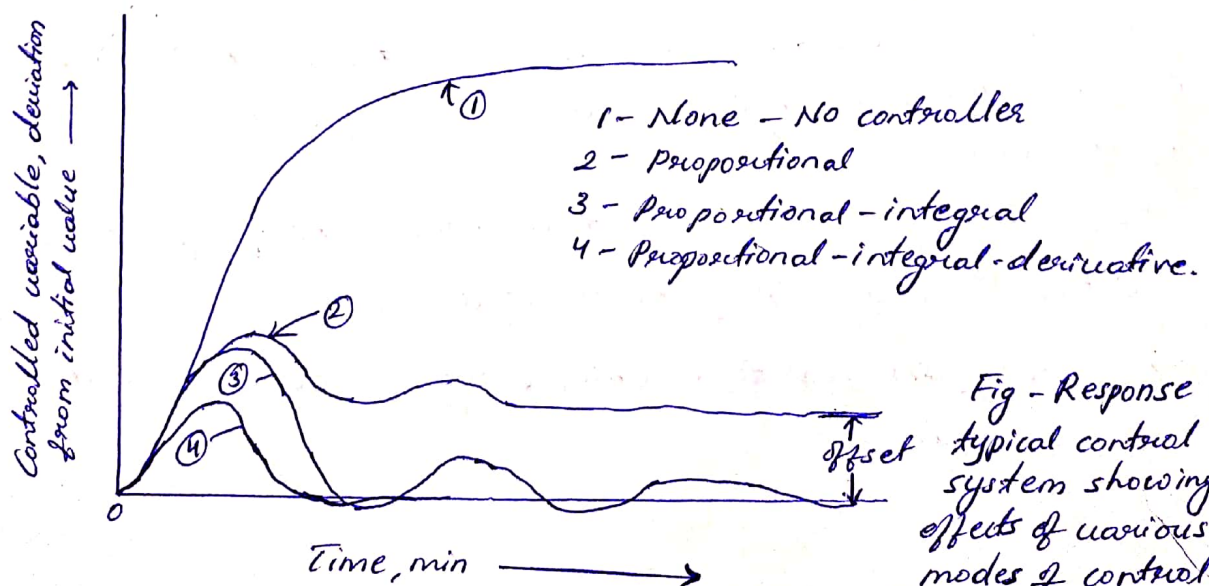 Controlled variable, deviation
from initial value →
①
1- None - No controller
2 - Proportional
3 - Proportional-integral
4 - Proportional-integral-derivative.
②
③
④
offset
0
Time, min →
Fig - Response
typical control
system showing
effects of various
modes of control